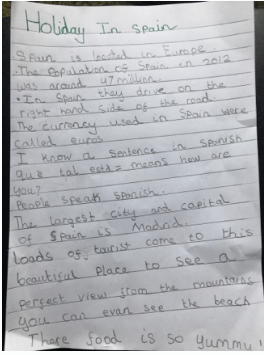 Holiday In Spain
Spain is located in Europe.
• The Population of Spain in 2012
was around 47 million.
• In Spain they drive on the
right hand side of the road
The currency used in Spain were
called euros
I know a sentence in spanish
que tal esta = means how are
you?
People speak spanish.
The largest city and capital
of Spain is Madrid.
loads of tourist come to this
beautiful Place to see a
perfect view from the mountains
you can evan see the beach
There food is so yummy!